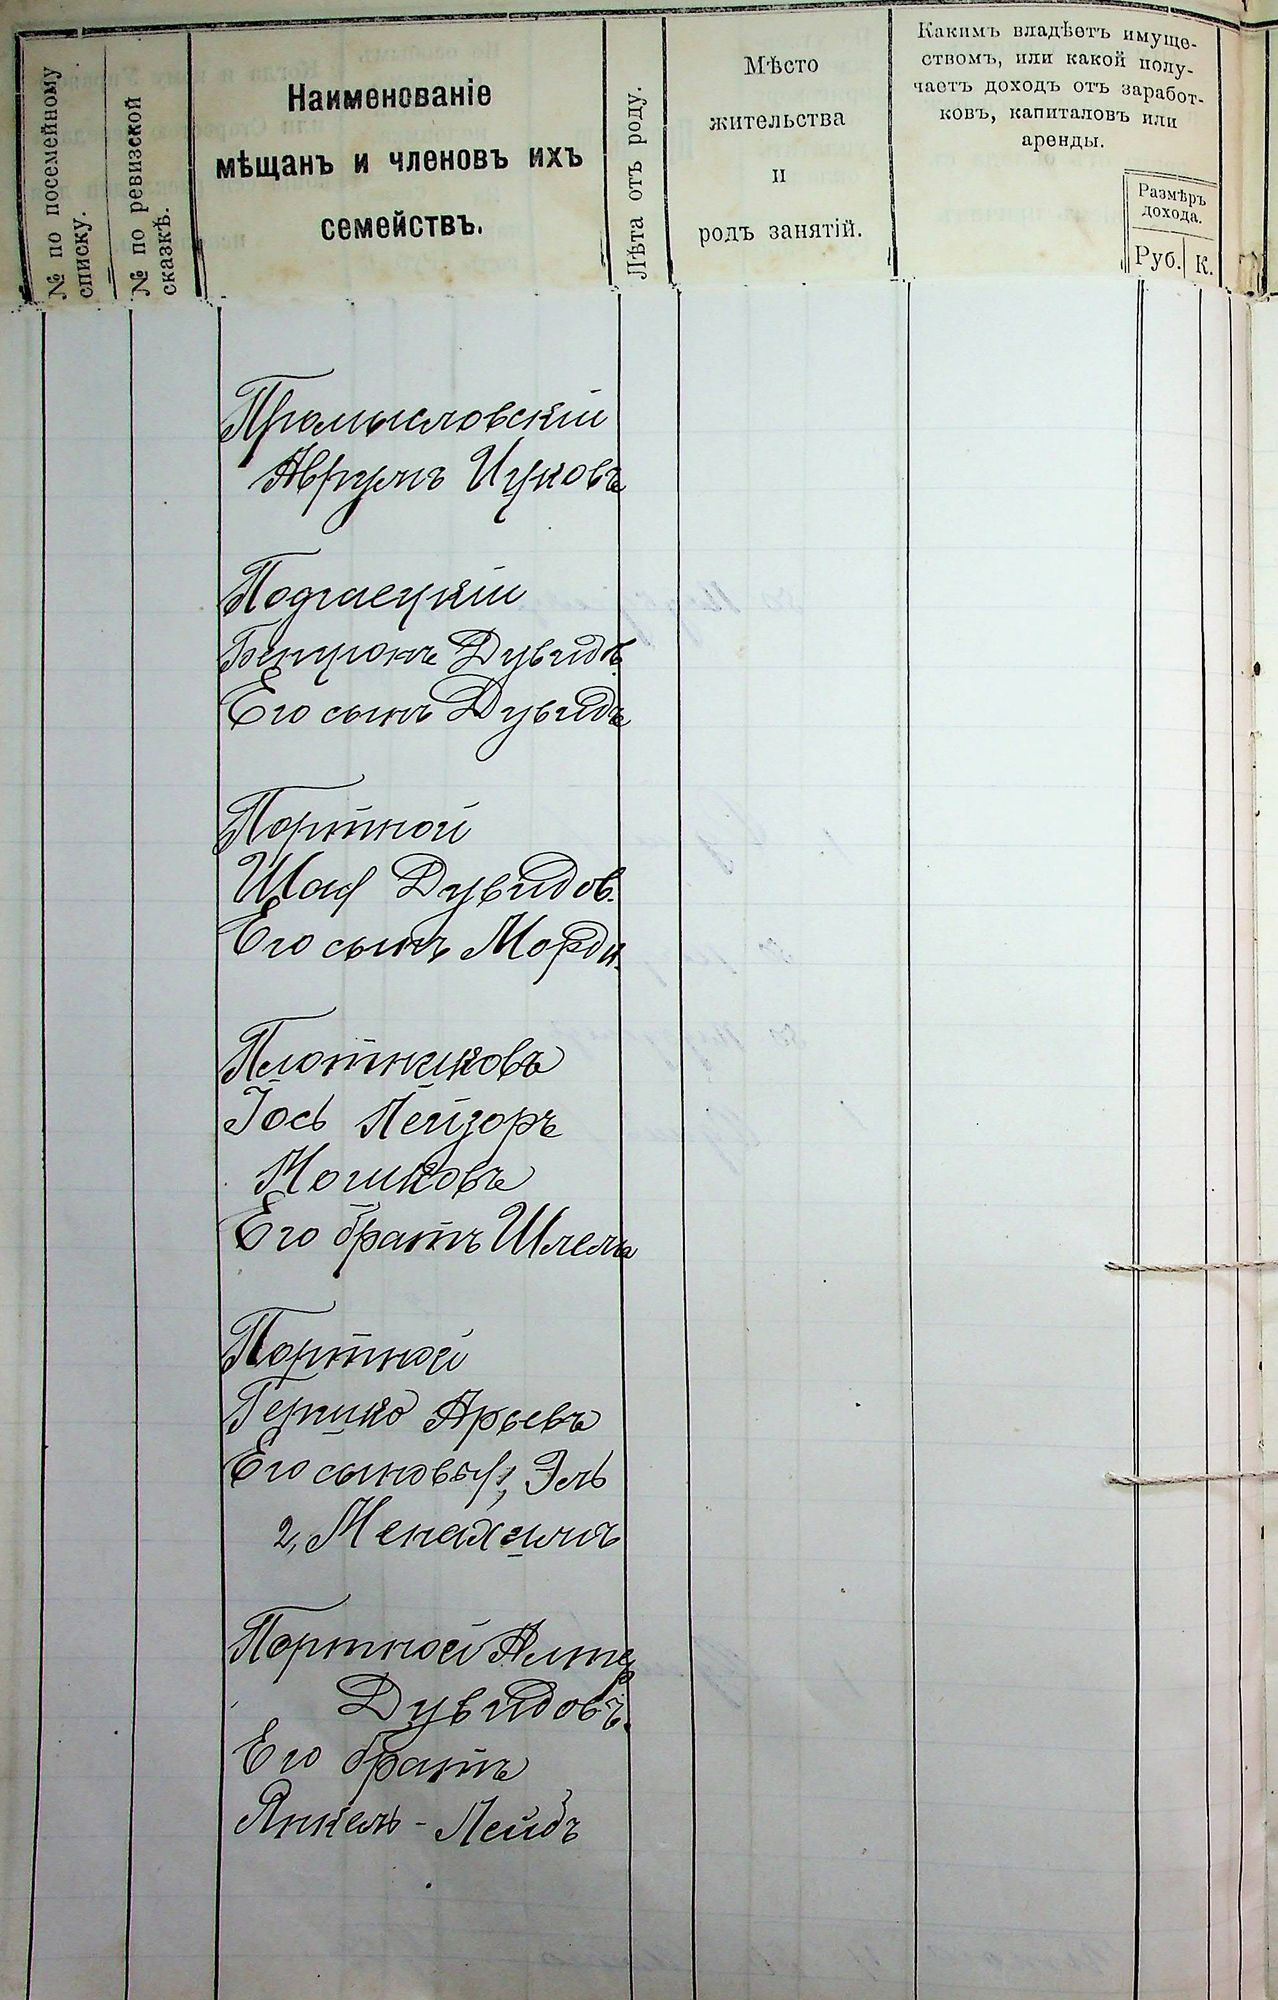 № по посемейному
списку.
№ по ревизской
сказкѣ.
Наименованіе
мѣщанъ и членовъ ихъ
семействъ.
Лѣта отъ роду.
Мѣсто
жительства
и
родъ занятій.
Какимъ владѣетъ имуще-
ствомъ, или какой полу-
чаетъ доходъ отъ заработ-
ковъ, капиталовъ или
аренды.
Размѣръ
дохода.
Руб. К.
Промысловскій
Аврумъ Ицковъ
Подгаецкій
Бенціонъ Дувидов.
Его сынъ Дувидъ
Портной
Шая Дувидов.
Его сынъ Мордк.
Плотниковъ
Іось Лейзоръ
Мошковъ
Его братъ Шлема
Портной
Гершко Арьевъ
Его сыновья 1, Эль
2, Менахимъ
Портной Алтер
Дувидовъ.
Его братъ
Янкель - Лейбъ